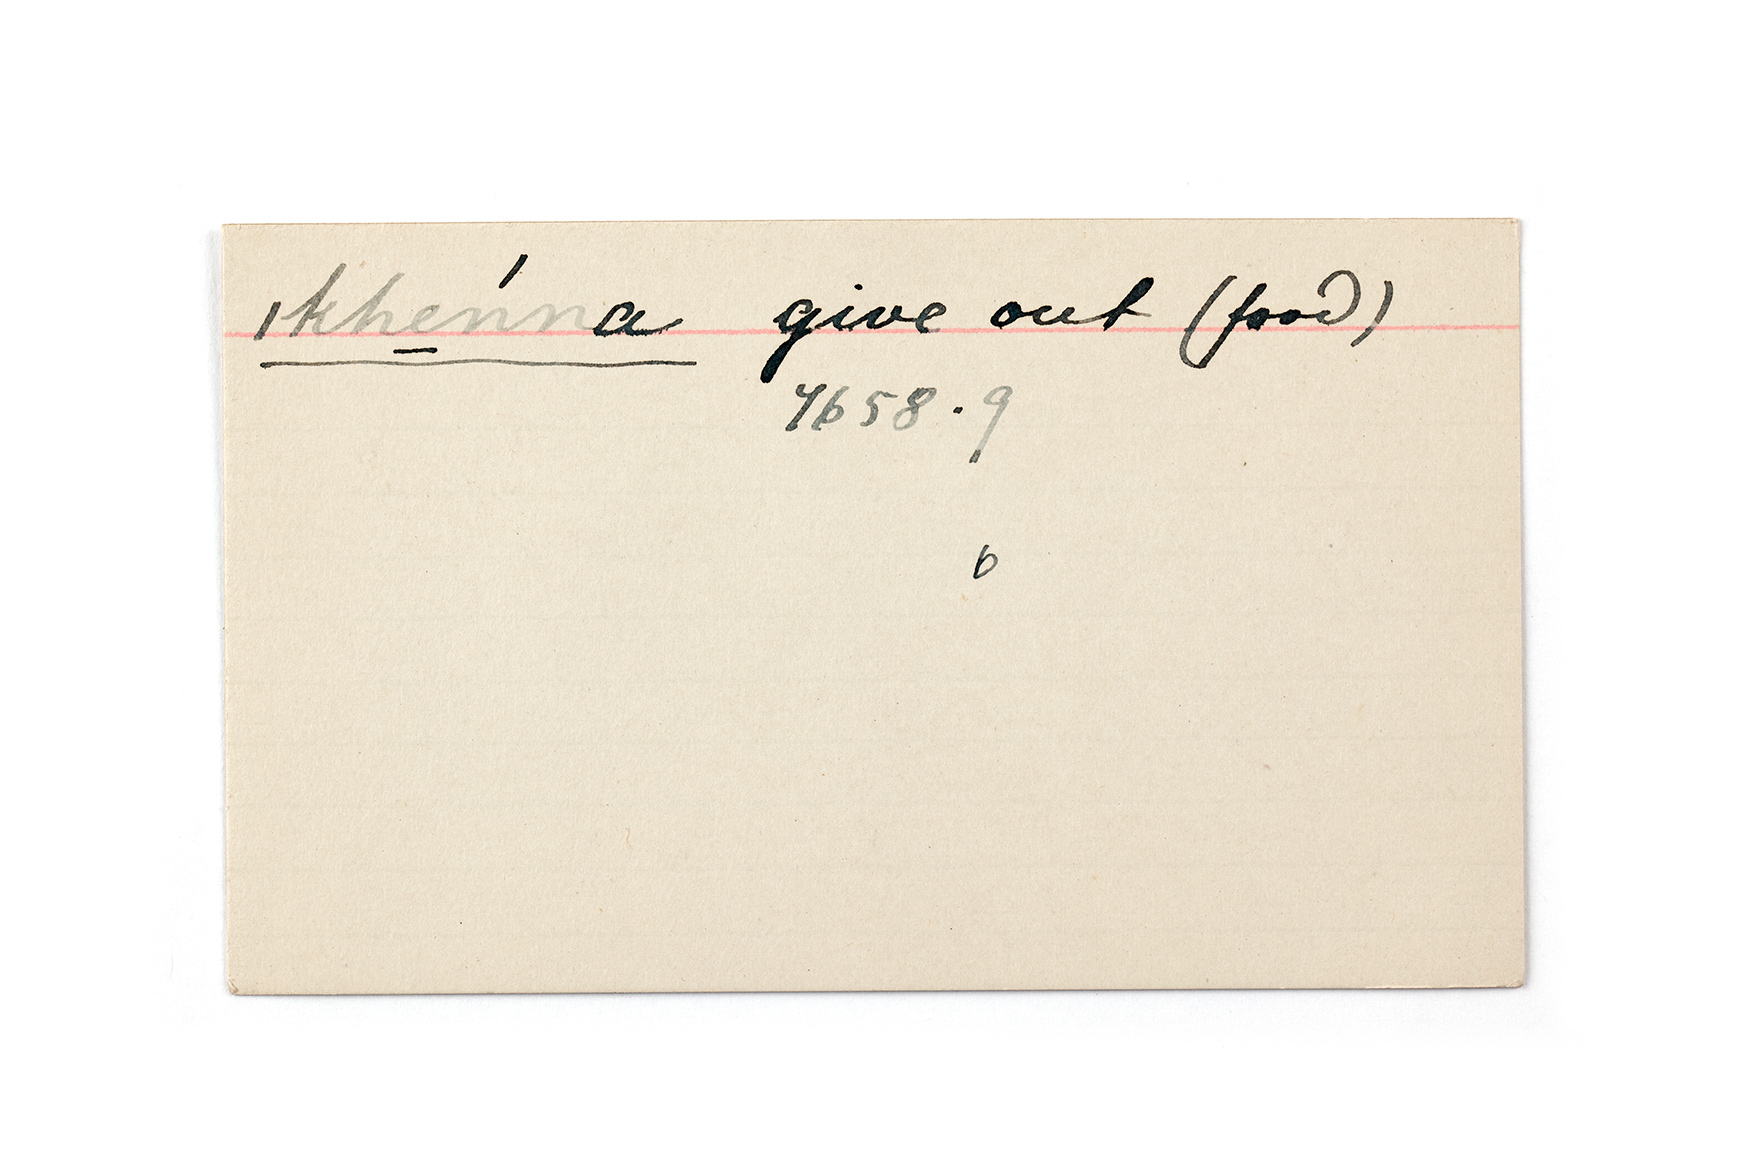 ıkhe̱ńna give out (food)
7658.9
6